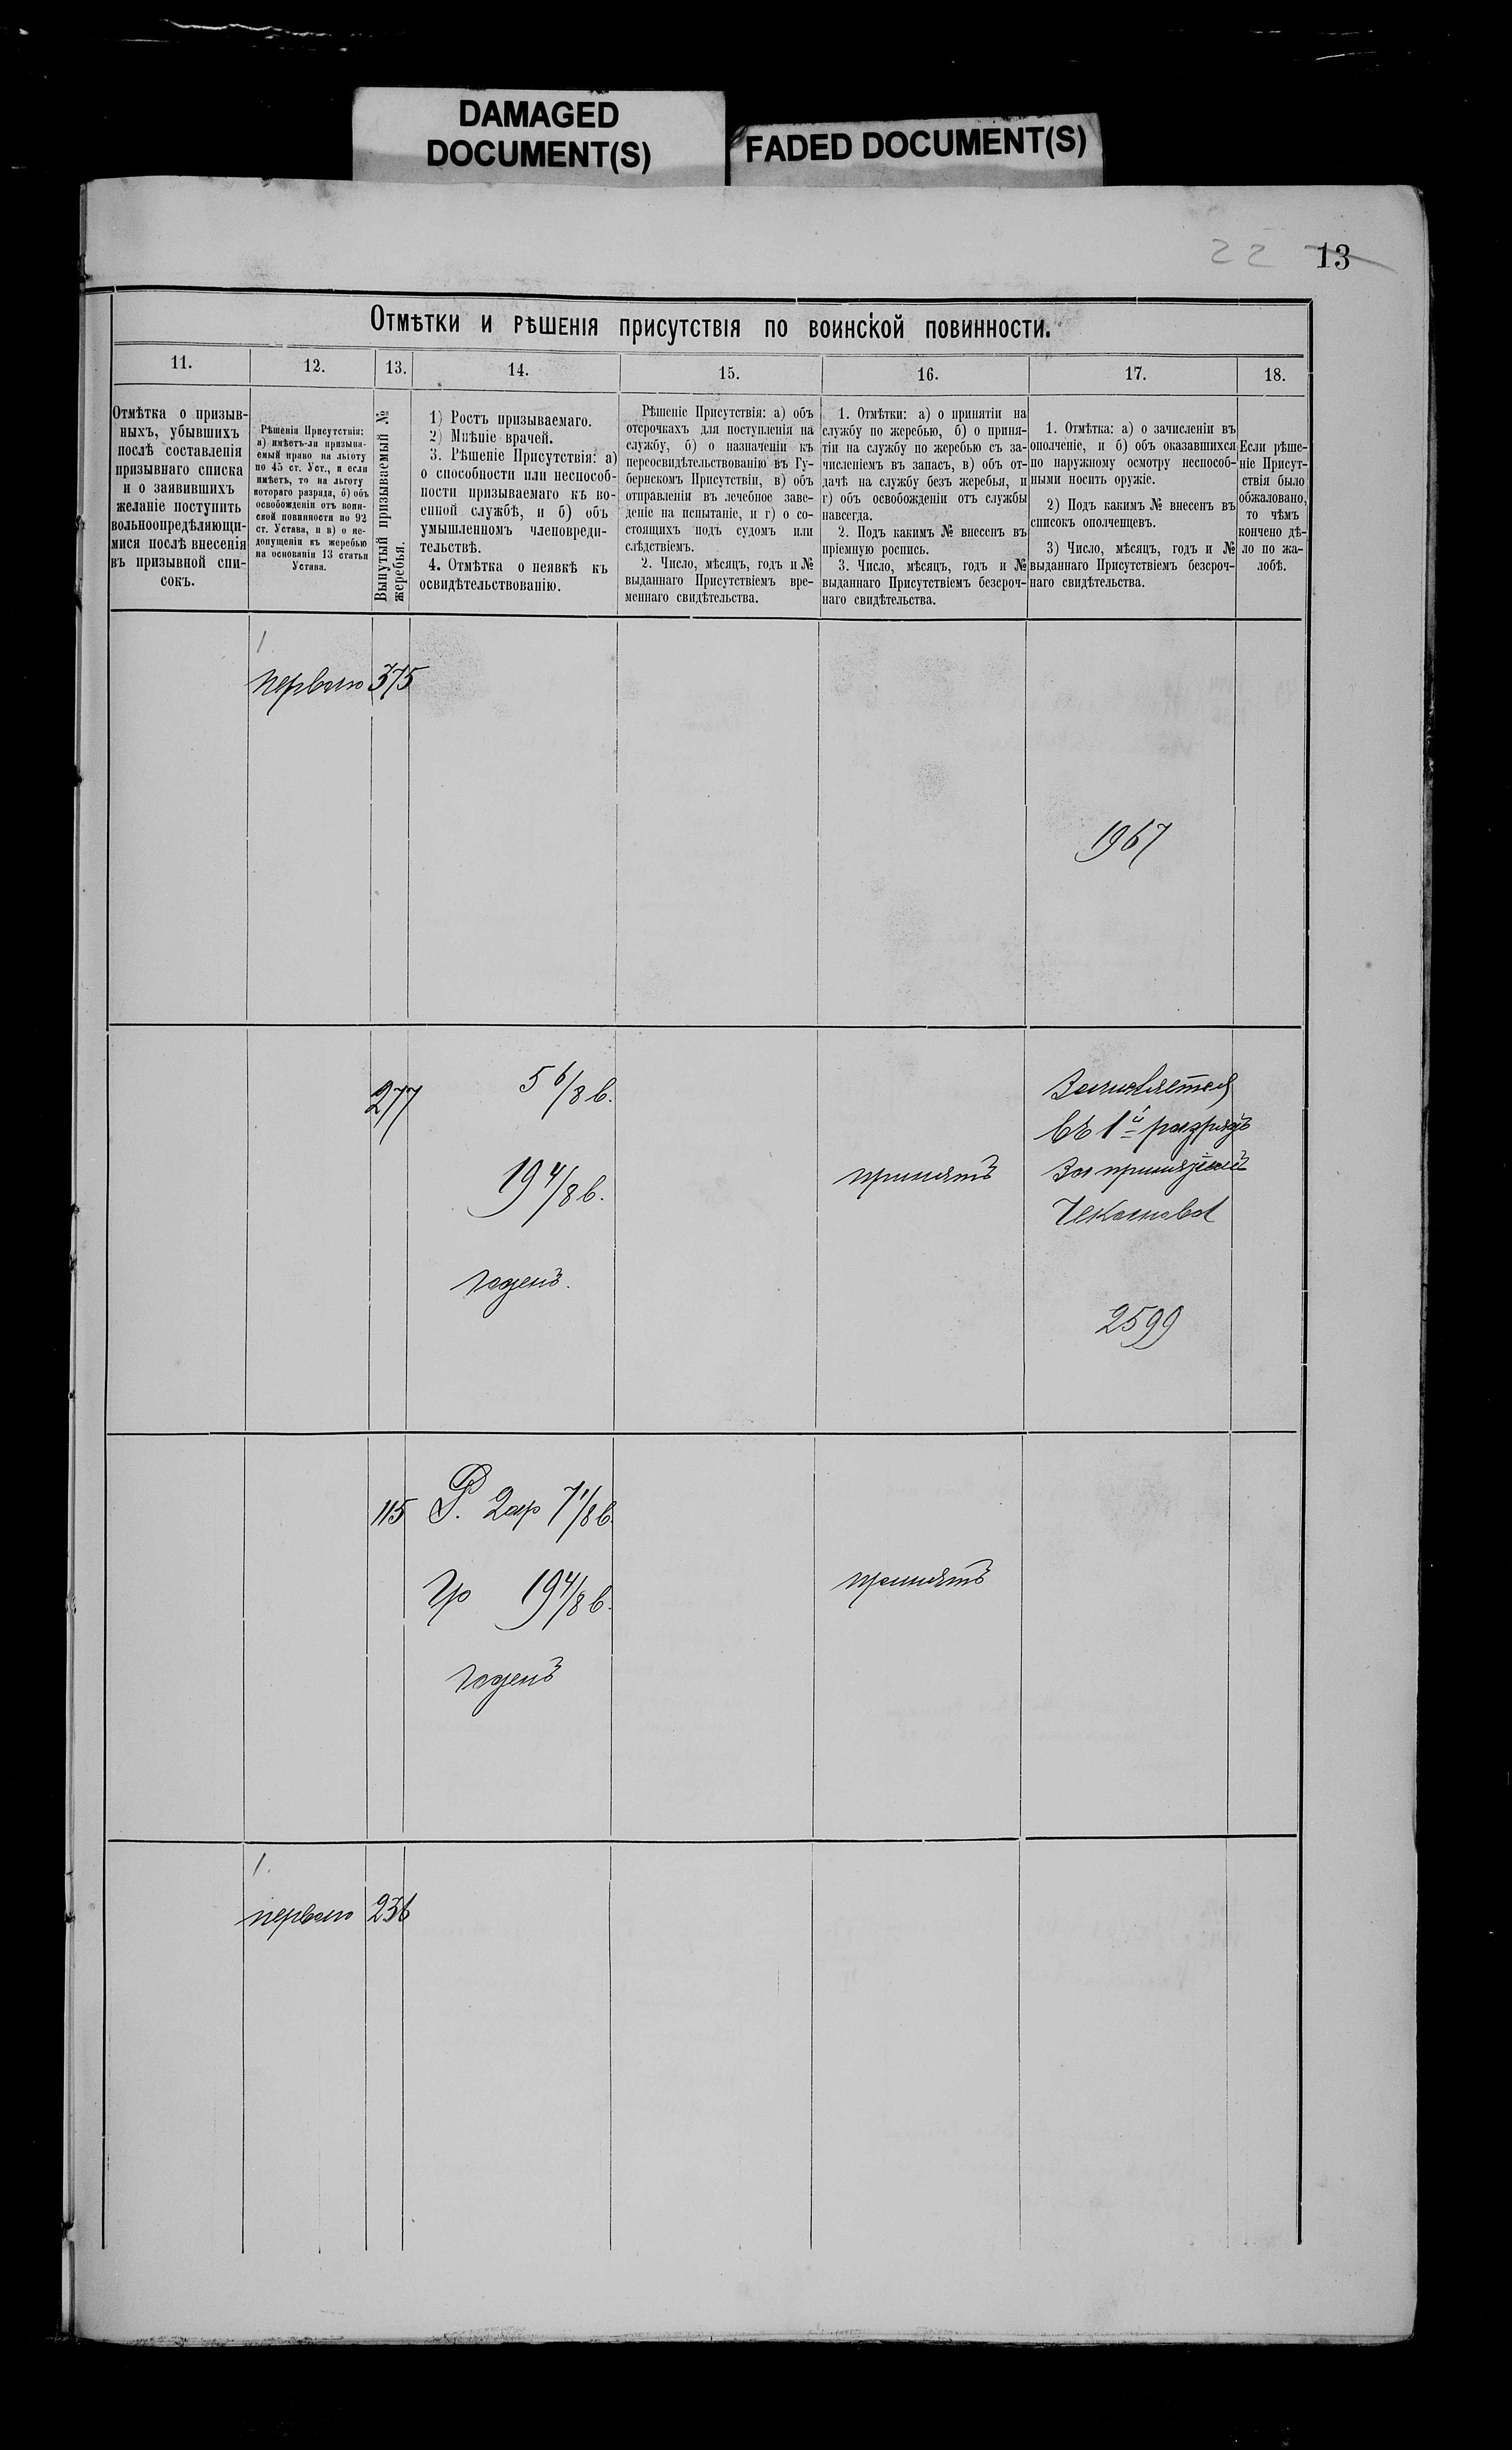 DAMAGED
DOCUMENT(S)
FADED DOCUMENT(S)
22 13
Отмѣтки и рѣшенія присутствія по воинской повинности.
11. 12. 13. 14. 15. 16. 17. 18.
Отмѣтка о призыв-
ныхъ, убывшихъ
послѣ составленія
призывнаго списка
и о заявившихъ
желаніе поступить
вольноопредѣляющи-
мися послѣ внесенія
въ призывной спи-
сокъ.
Рѣшенія Присутствія:
а) имѣетъ-ли призыва-
емый право на льготу
по 45 ст. Уст., и если
имѣетъ, то на льготу
котораго разряда, б) объ
освобожденіи отъ воин-
ской повинности по 92
ст. Устава, и в) о не-
допущеніи къ жеребью
на основаніи 13 статьи
Устава.
Вынутый призываемый №
жеребья.
1) Ростъ призываемаго.
2) Мнѣніе врачей.
3. Рѣшеніе Присутствія: а)
о способности или неспособ-
ности призываемаго къ во-
енной службѣ, и б) объ
умышленномъ членовреди-
тельствѣ.
4. Отмѣтка о неявкѣ къ
освидѣтельствованію.
Рѣшеніе Присутствія: а) объ
отсрочкахъ для поступленія на
службу, б) о назначеніи къ
переосвидѣтельствованію въ Гу-
бернскомъ Присутствіи, в) объ
отправленіи въ лечебное заве-
деніе на испытаніе, и г) о со-
стоящихъ подъ судомъ или
слѣдствіемъ.
2. Число, мѣсяцъ, годъ и №
выданнаго Присутствіемъ вре-
меннаго свидѣтельства.
1. Отмѣтки: а) о принятіи на
службу по жеребью, б) о приня-
тіи на службу по жеребью съ за-
численіемъ въ запасъ, в) объ от-
дачѣ на службу безъ жеребья, и
г) объ освобожденіи отъ службы
навсегда.
2. Подъ какимъ № внесенъ въ
пріемную роспись.
3. Число, мѣсяцъ, годъ и №
выданнаго Присутствіемъ безсроч-
наго свидѣтельства.
1. Отмѣтка: а) о зачисленіи въ
ополченіе, и б) объ оказавшихся
по наружному осмотру неспособ-
ными носить оружіе.
2) Подъ какимъ № внесенъ въ
списокъ ополченцевъ.
3) Число, мѣсяцъ, годъ и №
выданнаго Присутствіемъ безсроч-
наго свидѣтельства.
Если рѣше-
ніе Присут-
ствія было
обжаловано,
то чѣмъ
кончено дѣ-
ло по жа-
лобѣ.
1
перваго 375
1967
277
5 6/8 в.
19 4/8 в.
годенъ.
принятъ
Зачисляется
въ 1й разрядъ
за принятіемъ
Чеканова
2599
115
Р. 2ар 7 1/8 в.
Гр 19 4/8 в.
годенъ
принятъ
1.
перваго 236